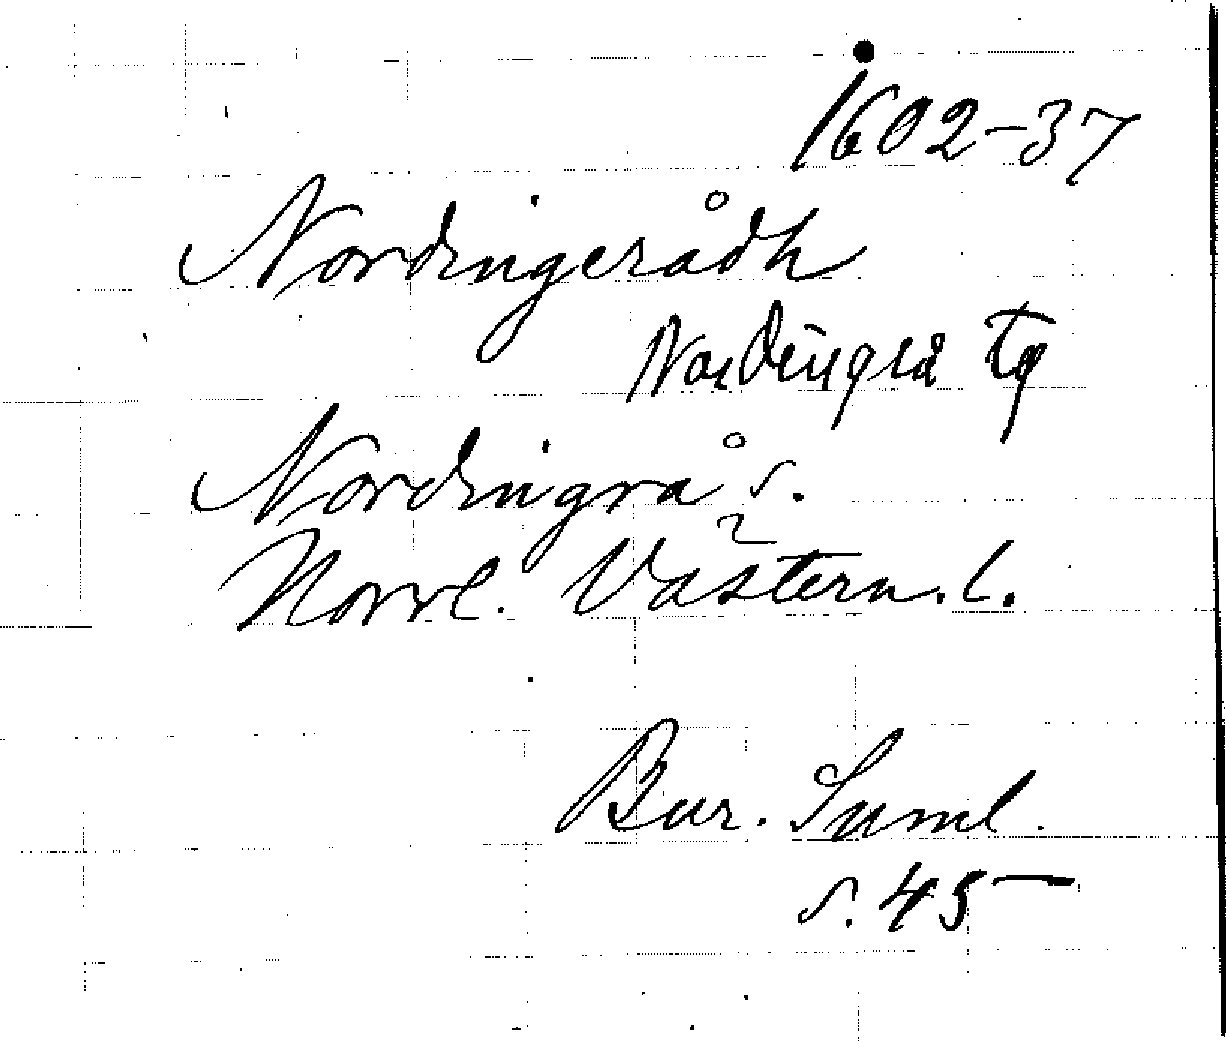 1602-37
Nordingerådh
Nordingrå tg
Nordingrå s.
Norrl. Västern. l.
Bur. Saml.
s. 45